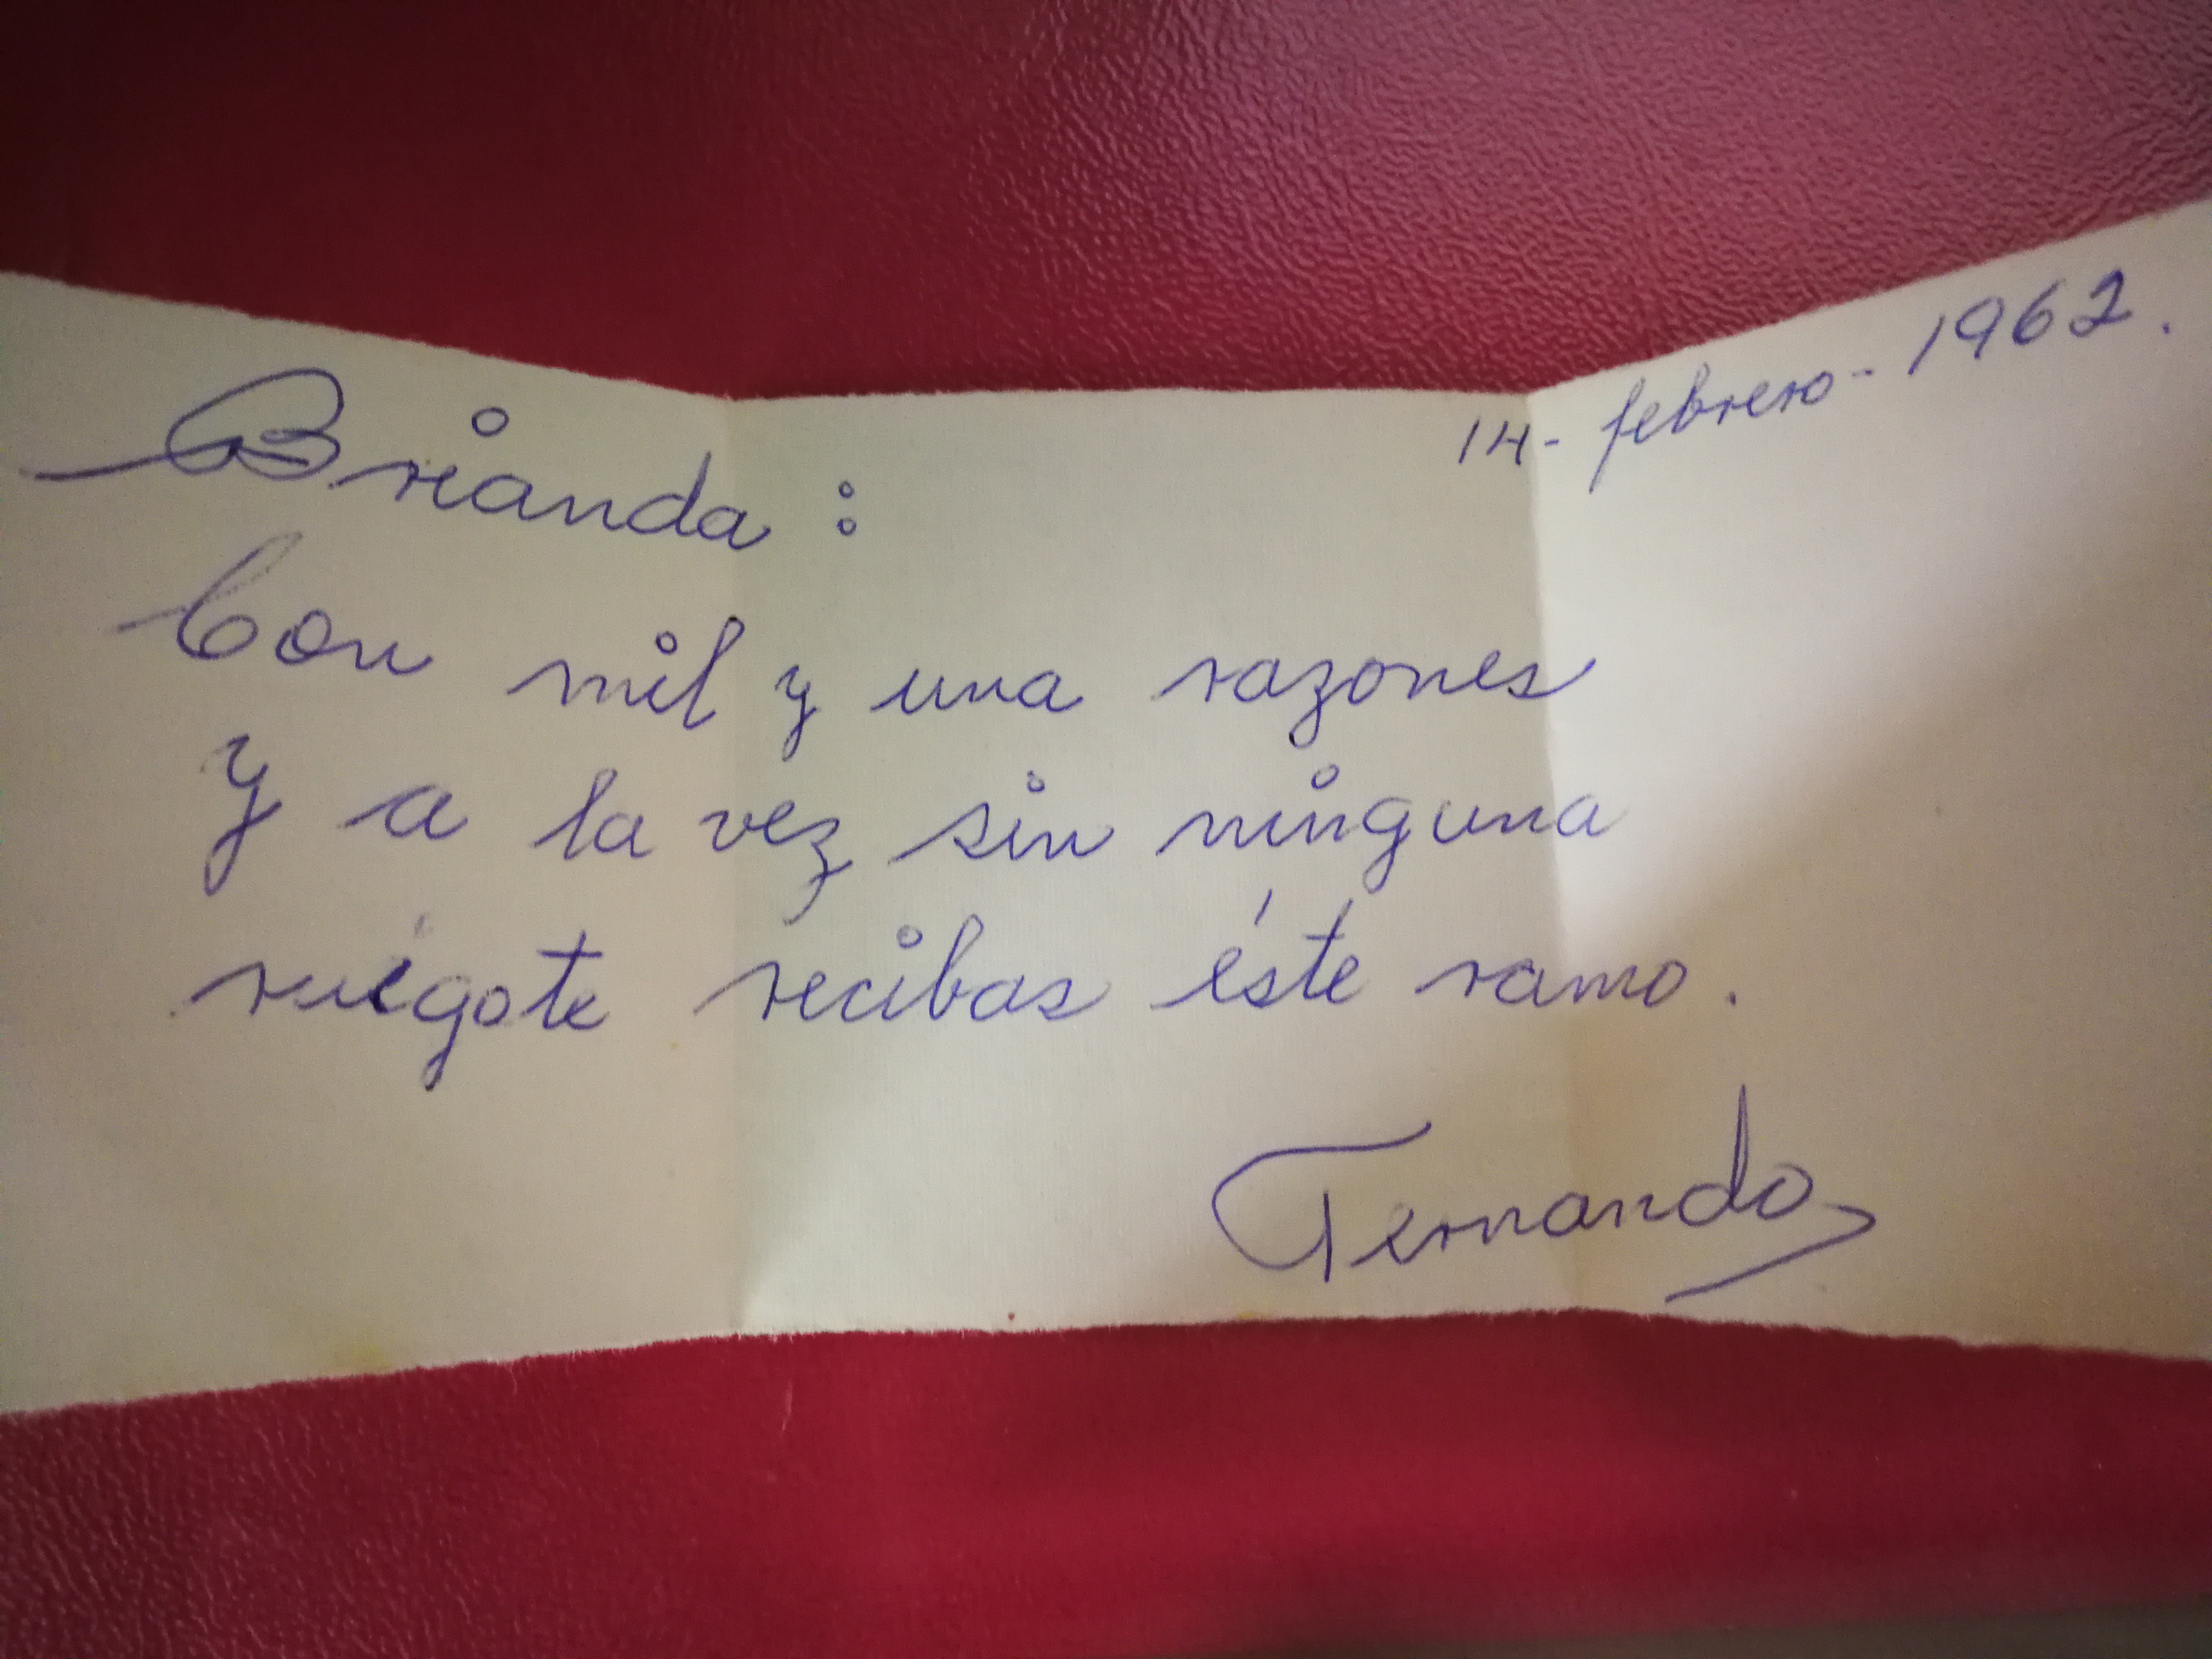 14- febrero - 1962.
Brianda:
Con mil y una razones
y a la vez sin ninguna
ruégote recibas éste ramo.
Fernando